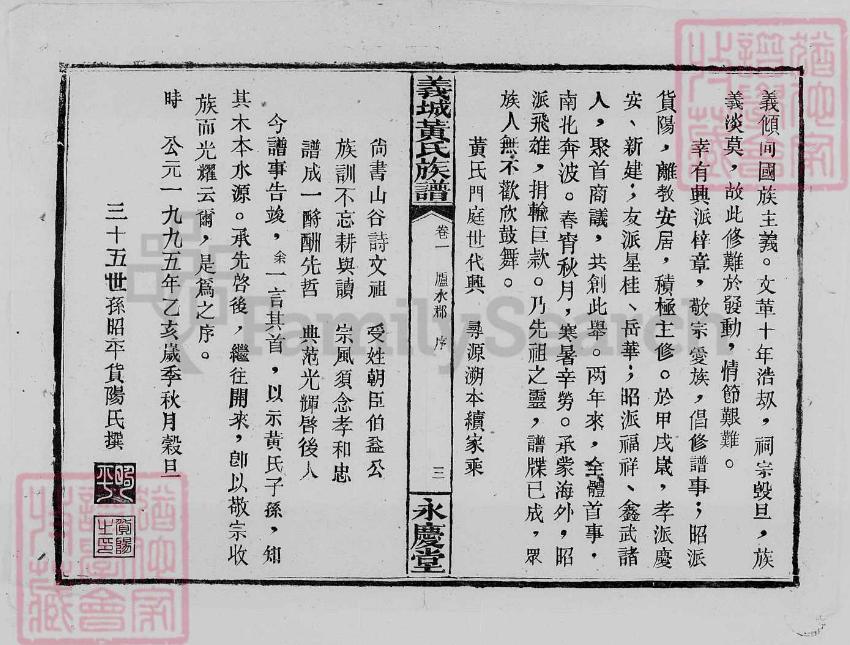 義傾向國族主義。文革十年浩劫，祠宗毀旦，族
義淡莫，故此修難於發動，情節艱難。
幸有興派梓章，敬宗愛族，倡修譜事；昭派
貨陽，離教安居，積極主修。於甲戌嵗，孝派慶
安、新建；友派星桂、岳華；昭派福祥、鑫武諸
人，聚首商議，共創此舉。两年來，全體首事，
南北奔波。春宵秋月，寒暑辛勞。承蒙海外，昭
派飛雄，捐輸巨款。乃先祖之靈，譜牒已成，眾
族人無不歡欣鼓舞。
黄氏門庭世代興　尋源溯本續家乘
義城黃氏族譜
卷一　廬水郡　序
三
永慶堂
尚書山谷詩文祖　受姓朝臣伯益公
族訓不忘耕與讀　宗風須念孝和忠
譜成一酹酬先哲　典范光輝啓後人
今譜事告竣，余一言其首，以示黄氏子孫，知
其木本水源。承先啓後，繼往開來，卽以敬宗收
族而光耀云爾，是爲之序。
時　公元一九九五年乙亥嵗季秋月穀旦
三十五世孫昭平貨陽氏撰
昭平
貨陽之印
FamilySearch